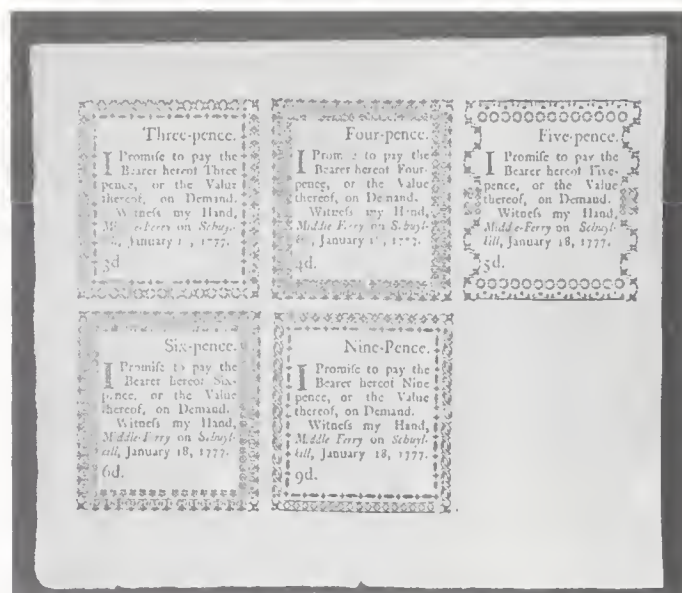 Three-pence.
I Promiſe to pay the
Bearer hereof Three
pence, or the Value
thereof, on Demand.
Witneſs my Hand,
Middle-Ferry on Schuyl-
January 1777.
3d
Four-pence.
I to pay the
Bearer hereof Four-
pence, or the Value
thereof, on Demand.
Witneſs my Hand,
Middle Ferry on Schuyl-
January
4d.
Five-pence.
I Promiſe to pay the
Bearer hereof Five-
pence, or the Value
thereof, on Demand.
Witneſs my Hand,
Middle-Ferry on Schuyl-
kill, January 18, 1777.
5d.
Six-pence.
I Promiſe to pay the
Bearer hereof Six-
pence, or the Value
thereof, on Demand.
Witneſs my Hand,
Middle-Ferry on Schuyl-
kill, January 18, 1777.
6d.
Nine-Pence.
I Promiſe to pay the
Bearer hereof Nine
pence, or the Value
thereof, on Demand.
Witneſs my Hand,
Middle Ferry on Schuyl-
kill, January 18, 1777.
9d.